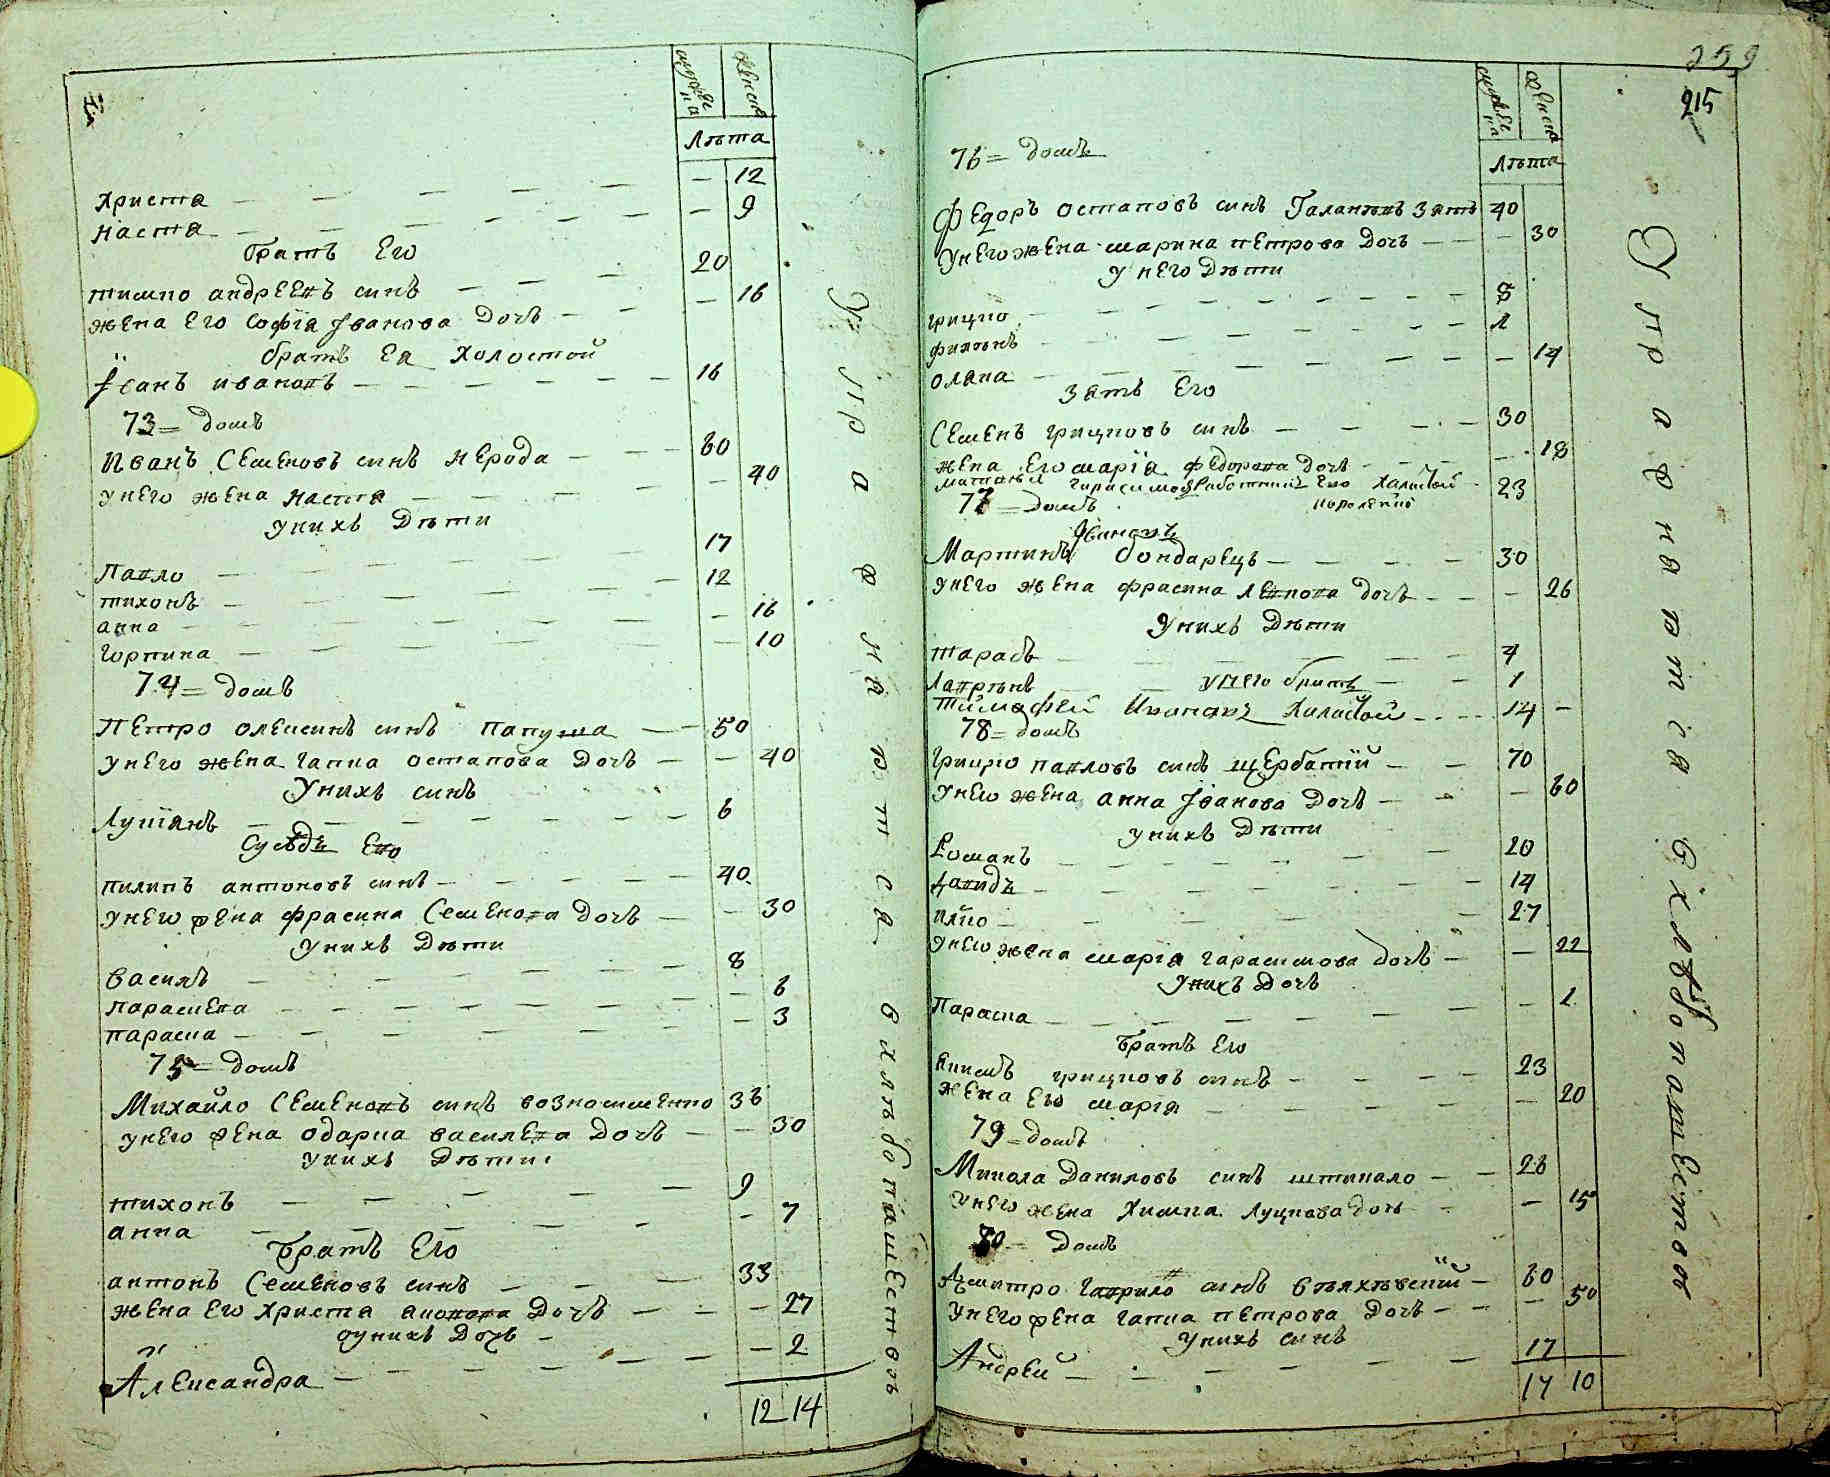 мужеска
женска
Лѣта
Христя — 12
Настя — 9
Братъ Его
тимко андрЕЕвъ синъ — 20
жЕна Его Софїя Јванова Дочъ — 16
братъ Ея холостой
Јванъ ивановъ — 16
73 = домъ
Иванъ СЕмЕновъ синъ нЕрода — 60
унЕго жЕна настя — 40
унихъ Дѣти
Павло — 17
тихонъ — 12
анна — 16
горпина — 10
74 = домъ
ПЕтро олЕксинъ синъ папуша — 50
унЕго жЕна ганна остапова Дочъ — 40
Унихъ синъ
Лукїянъ — 6
Сусѣдъ Его
пилипъ антоновъ синъ — 40
унЕго жЕна фрасина СЕмЕнова Дочъ — 30
унихъ Дѣти
василъ — 8
парасцЕва — 6
параска — 3
75 = домъ
Михайло СЕмЕновъ синъ вознесЕнко 36
унЕго жЕна одарка василЕва Дочъ — 30
унихъ Дѣти
тихонъ — 9
анна — 7
Братъ Его
антонъ СЕмЕновъ синъ — 33
жЕна Его христя Дочъ — 27
оунихъ Дочъ
АлЕксандра — 2
12 14
Упражняютса
в хлѣбопашЕствовъ
259
215
мужеска
женска
Лѣта
76 = домъ
ФЕдоръ остаповъ синъ Галаганъ зять 40
УнЕго жЕна марина пЕтрова Дочъ — 30
у нЕго Дѣти
грицко — 8
филонъ — 1
олана — 14
зять Его
СЕмЕнъ грицковъ синъ — 30
жЕна Его марїя фЕдорова Дочъ — 18
гарасимов работникъ Его Халастой 23
77 = домъ
Ивановъ
Мартинъ бондарЕцъ — 30
унЕго жЕна фрасина лЕвкова дочъ — 26
Унихъ Дѣти
тарасъ — 4
лаврѣнъ — 1
унего братъ
тимофей Ивановъ Халастой — 14 —
78 = домъ
грицко павловъ синъ щЕрбатїй — 70
унЕго жЕна анна Јванова Дочъ — 60
унихъ Дѣти
Романъ — 20
Давидъ — 14
илко — 27
унЕго жЕна марїя гарасимова дочъ — 22
Унихъ Дочъ
Параска — 1
Братъ Его
якимъ грицковъ синъ — 23
жЕна Его марїя — 20
79 = домъ
Микола Даниловъ синъ штикало — 26
унЕго жЕна Химка Луцкова дочъ — 15
80 = домъ
Дмитро Гаврилов синъ — 60
унЕго жЕна ганна пЕтрова Дочъ — 50
унихъ синъ
АндрЕй — 17
17 10
Упражняютса
в хлѣбопашЕствов